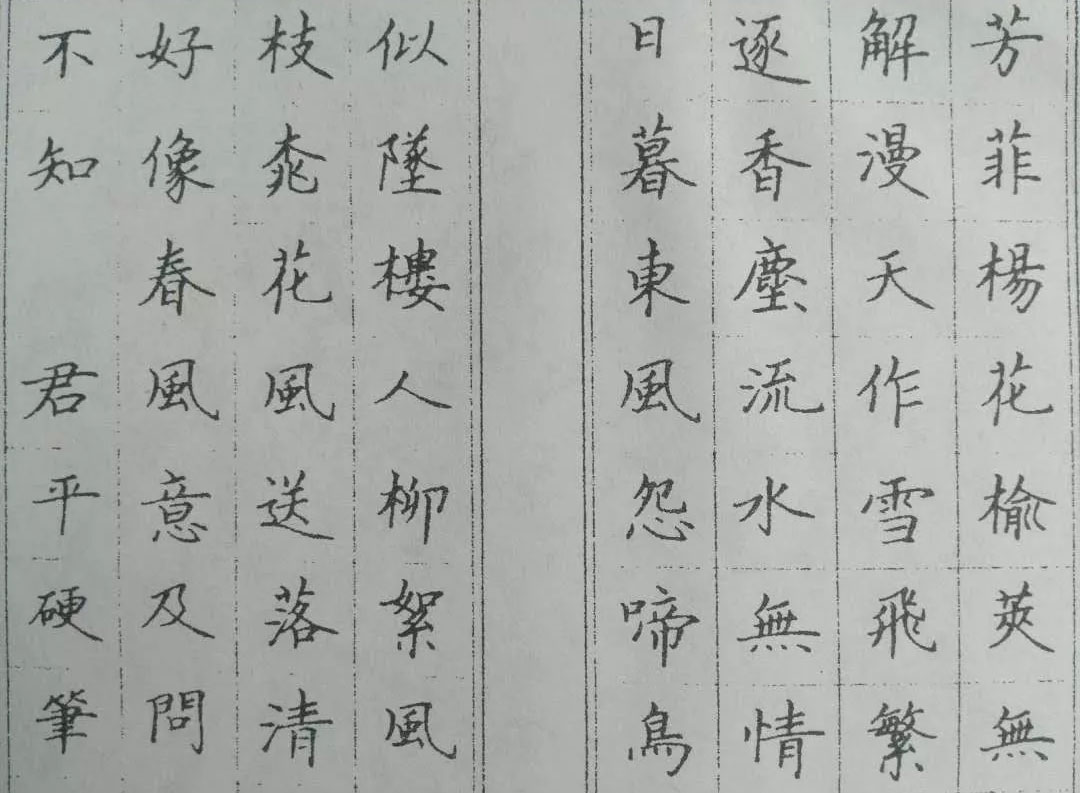 芳菲楊花榆莢無
解漫天作雪飛繁
逐香塵流水無情
日暮東風怨啼鳥
似墜樓人柳絮風
枝花風送落清
好像春風意及問
不知 君平硬筆